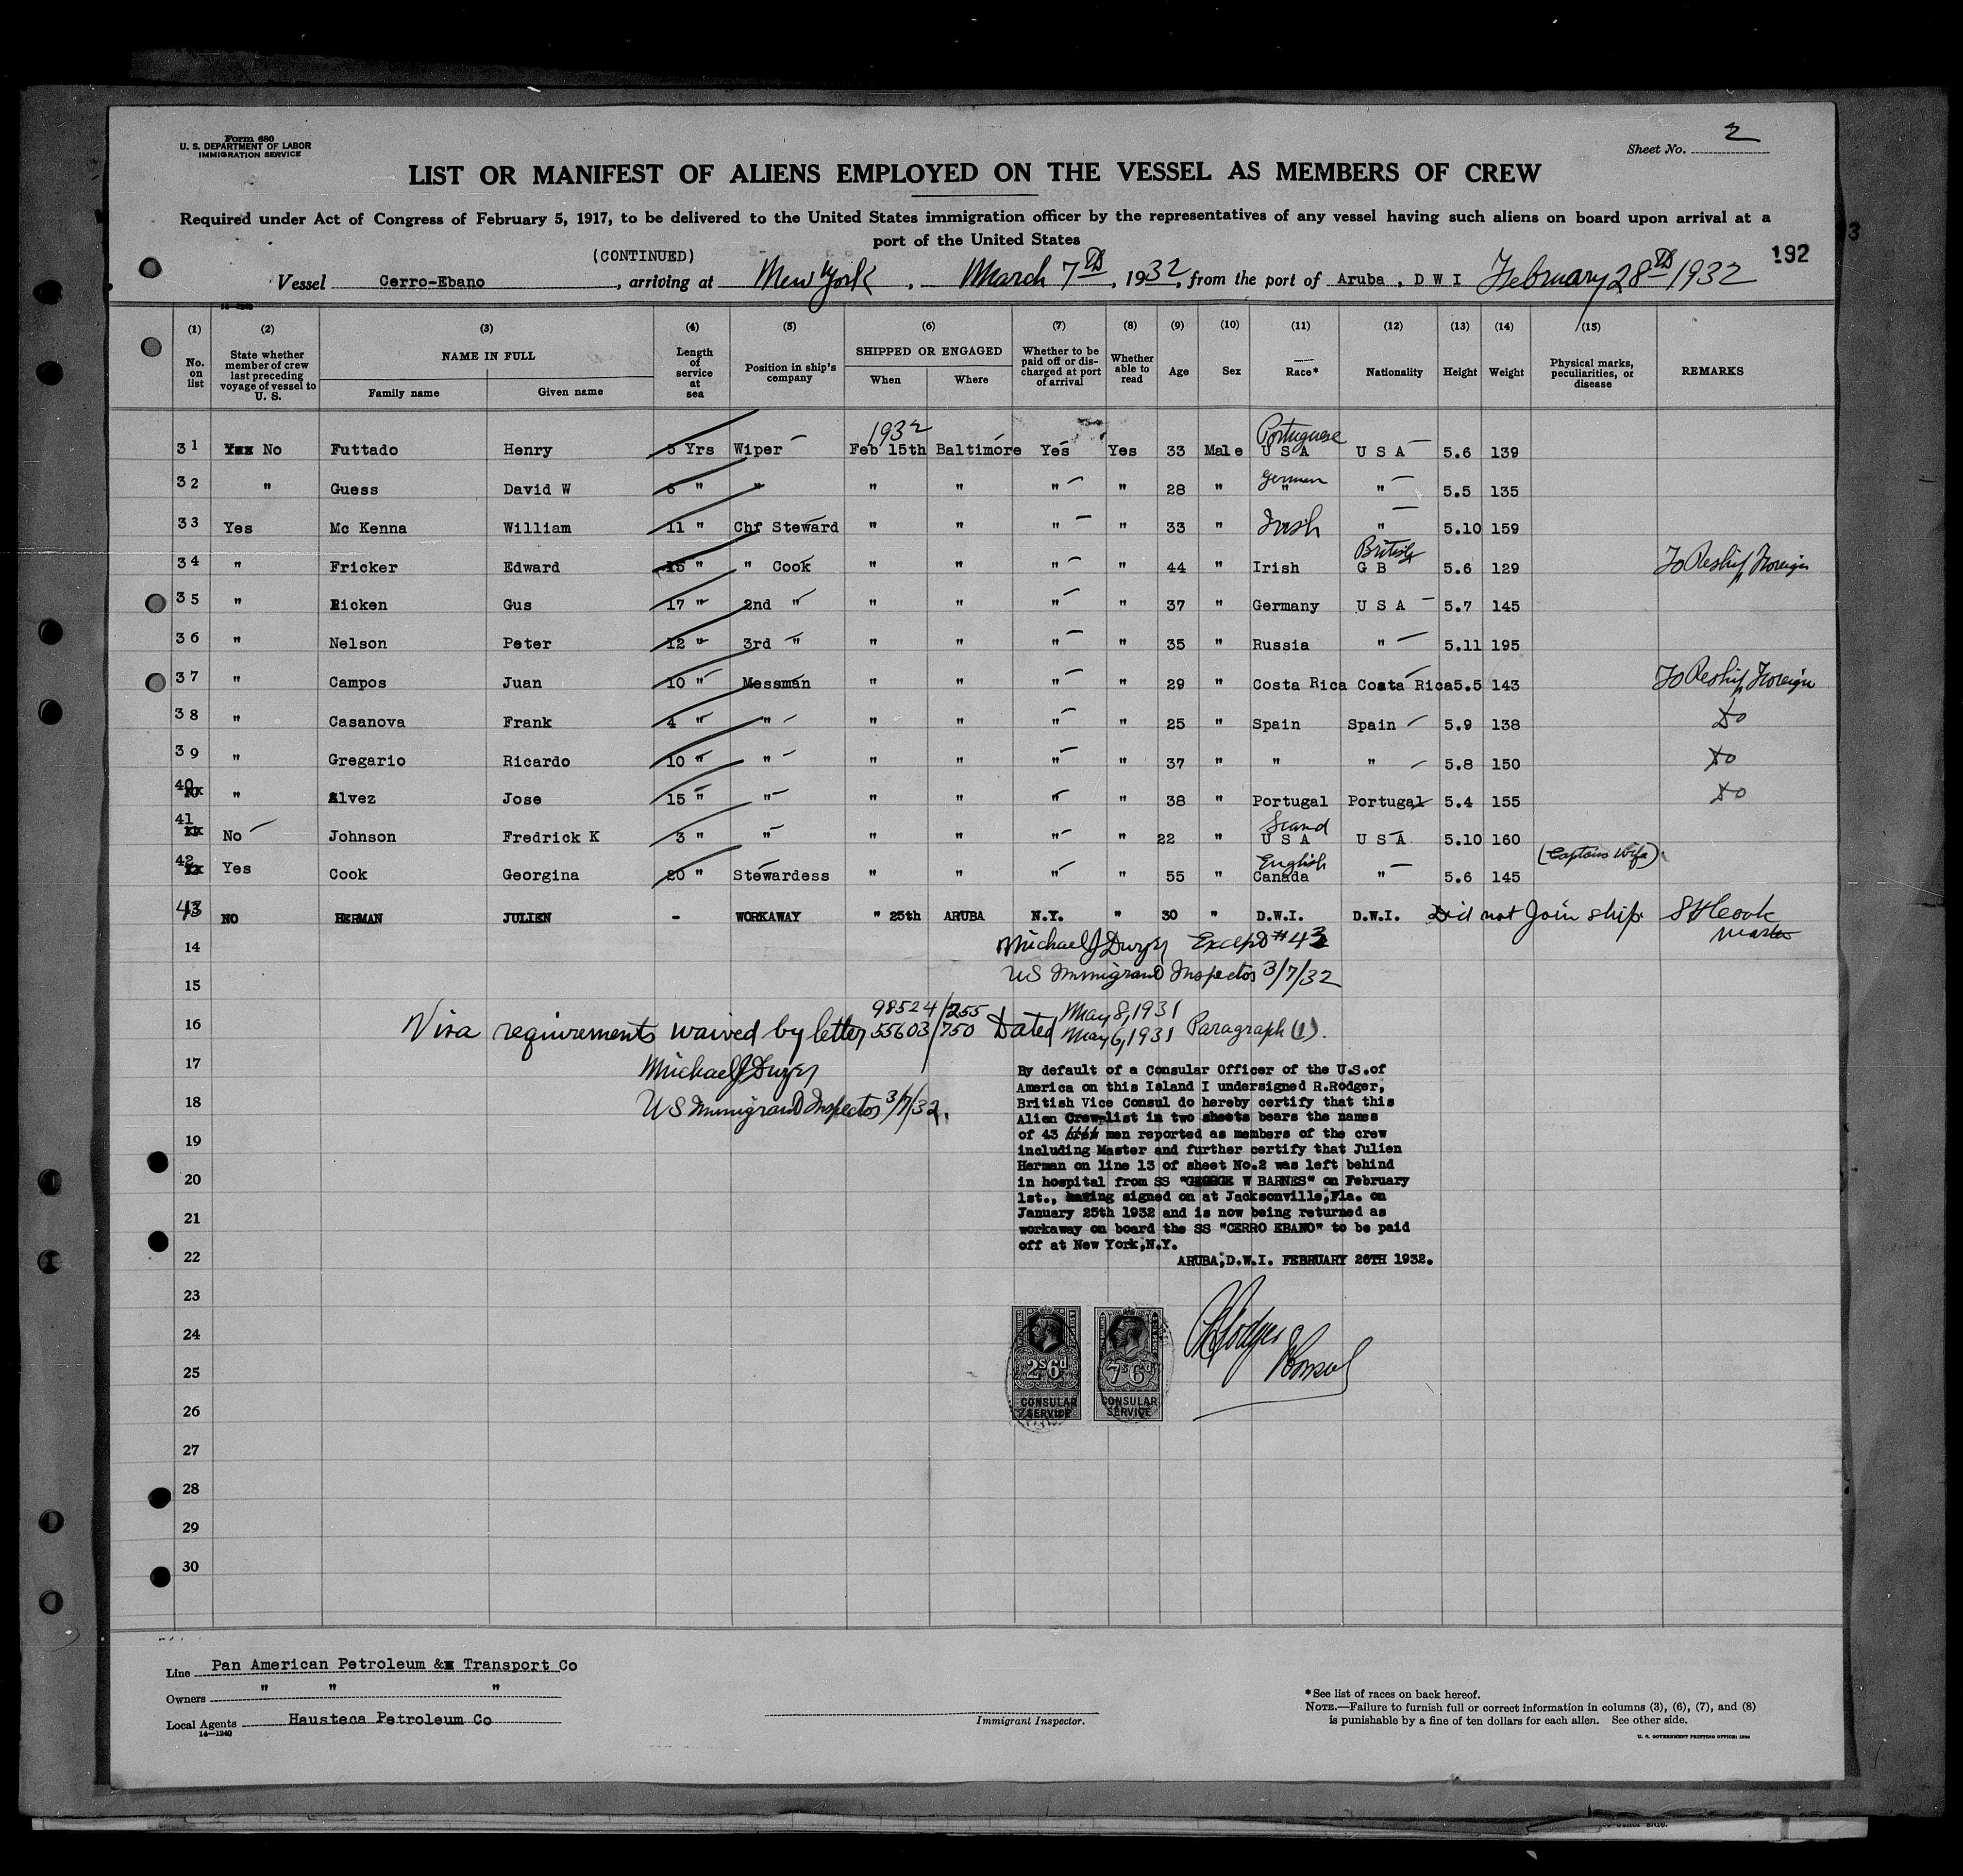 Form 680
U. S. DEPARTMENT OF LABOR
IMMIGRATION SERVICE
Sheet No. 2
LIST OR MANIFEST OF ALIENS EMPLOYED ON THE VESSEL AS MEMBERS OF CREW
Required under Act of Congress of February 5, 1917, to be delivered to the United States immigration officer by the representatives of any vessel having such aliens on board upon arrival at a
port of the United States
(CONTINUED)
192
Vessel Cerro-Ebano, arriving at New York, March 7th, 1932, from the port of Aruba, D W I February 28th 1932
(1) (2) (3) (4) (5) (6) (7) (8) (9) (10) (11) (12) (13) (14) (15)
No. on list State whether member of crew last preceding voyage of vessel to U. S. NAME IN FULL Family name Given name Length of service at sea Position in ship's company SHIPPED OR ENGAGED When Where Whether to be paid off or discharged at port of arrival Whether able to read Age Sex Race* Nationality Height Weight Physical marks, peculiarities, or disease REMARKS
1932 Portuguese
31 No Futtado Henry 5 Yrs Wiper Feb 15th Baltimore Yes Yes 33 Male U S A U S A 5.6 139
32 " Guess David W 6 " " " " " " 28 " German " " 5.5 135
33 Yes Mc Kenna William 11 " Chf Steward " " " " 33 " Irish " 5.10 159
British
34 " Fricker Edward 15 " " Cook " " " " 44 " Irish G B 5.6 129 To Reship Foreign
35 " Ricken Gus 17 " 2nd " " " " " 37 " Germany U S A 5.7 145
36 " Nelson Peter 12 " 3rd " " " " " 35 " Russia " 5.11 195
37 " Campos Juan 10 " Messman " " " " 29 " Costa Rica Costa Rica 5.5 143 To Reship Foreign
38 " Casanova Frank 4 " " " " " " 25 " Spain Spain 5.9 138 Do
39 " Gregario Ricardo 10 " " " " " " 37 " " " 5.8 150 Do
40 " Alvez Jose 15 " " " " " " 38 " Portugal Portugal 5.4 155 Do
41 No Johnson Fredrick K 3 " " " " " " 22 " Scand U S A U S A 5.10 160
42 Yes Cook Georgina 20 " Stewardess " " " " 55 " English Canada " 5.6 145 (Captains Wife).
43 NO HERMAN JULIEN - WORKAWAY " 25th ARUBA N.Y. " 30 " D.W.I. D.W.I. Did not Join ship. S H Cook
Master
14 Michael J Dwyer Except #43
15 US Immigrant Inspector 3/7/32
98524/255 May 8, 1931
16 Visa requirements waived by letter 55603/750 Dated May 6, 1931 Paragraph (1).
17 Michael J Dwyer
18 US Immigrant Inspector 3/7/32.
By default of a Consular Officer of the U.S.of
America on this Island I undersigned R.Rodger,
British Vice Consul do hereby certify that this
Alien Crew-list in two sheets bears the names
of 43 men reported as members of the crew
including Master and further certify that Julien
Herman on line 13 of sheet No.2 was left behind
in hospital from SS "GEORGE W BARNES" on February
1st., having signed on at Jacksonville,Fla. on
January 25th 1932 and is now being returned as
workaway on board the SS "CERRO EBANO" to be paid
off at New York,N.Y.
ARUBA,D.W.I. FEBRUARY 26TH 1932.
19
20
21
22
23
24
25
26
27
28
29
30
2s6d CONSULAR SERVICE
7s6d CONSULAR SERVICE
R Rodger
V Consul
Line Pan American Petroleum & Transport Co
Owners " " "
Local Agents Hausteca Petroleum Co
14—1240
Immigrant Inspector.
*See list of races on back hereof.
NOTE.—Failure to furnish full or correct information in columns (3), (6), (7), and (8)
is punishable by a fine of ten dollars for each alien. See other side.